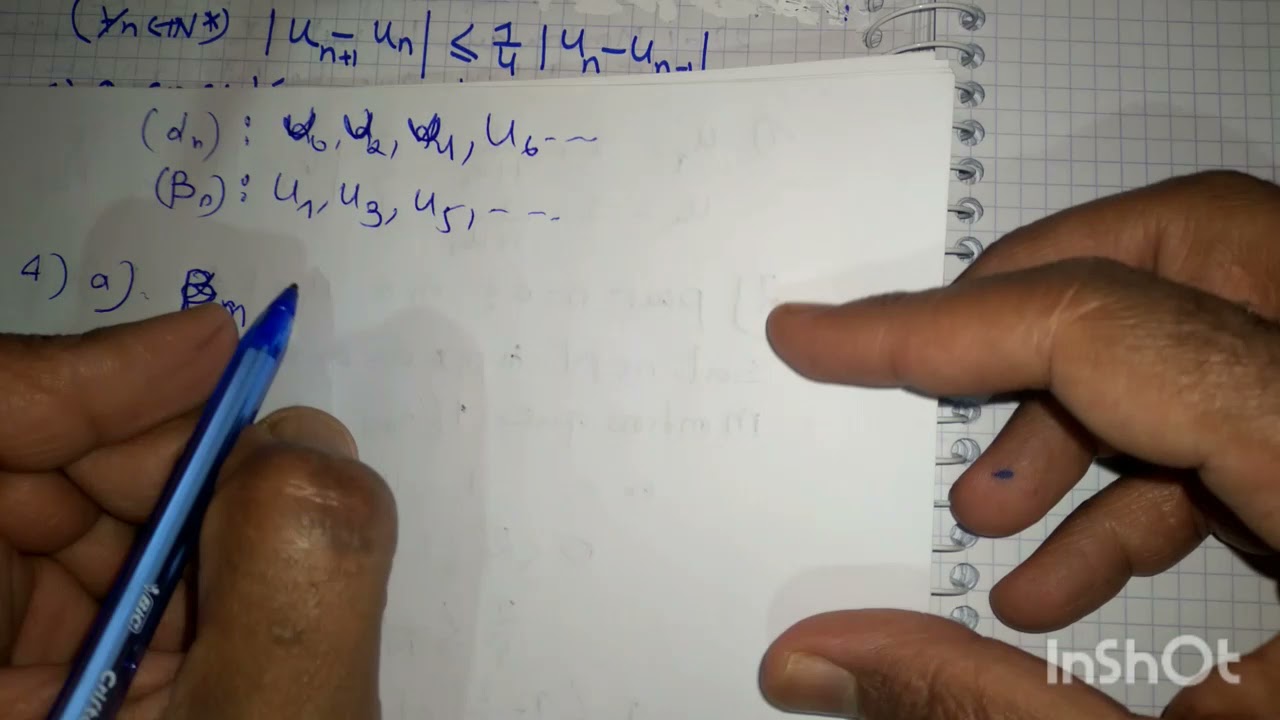 (∀n∈IN*) |U_{n+1} - U_n| ≤ 1/4 |U_n - U_{n-1}|
(α_n) : α_0, α_2, α_4, U_6 ---
(β_n) : U_1, U_3, U_5, ---
4) a)
BIC
Cristal
InShOt